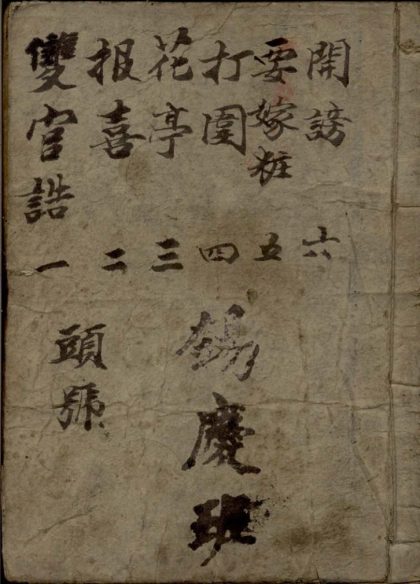 開謗 六
要嫁粧 五
打圍 四
花亭 三
报喜 二
雙官誥 一
錫慶班
頭號